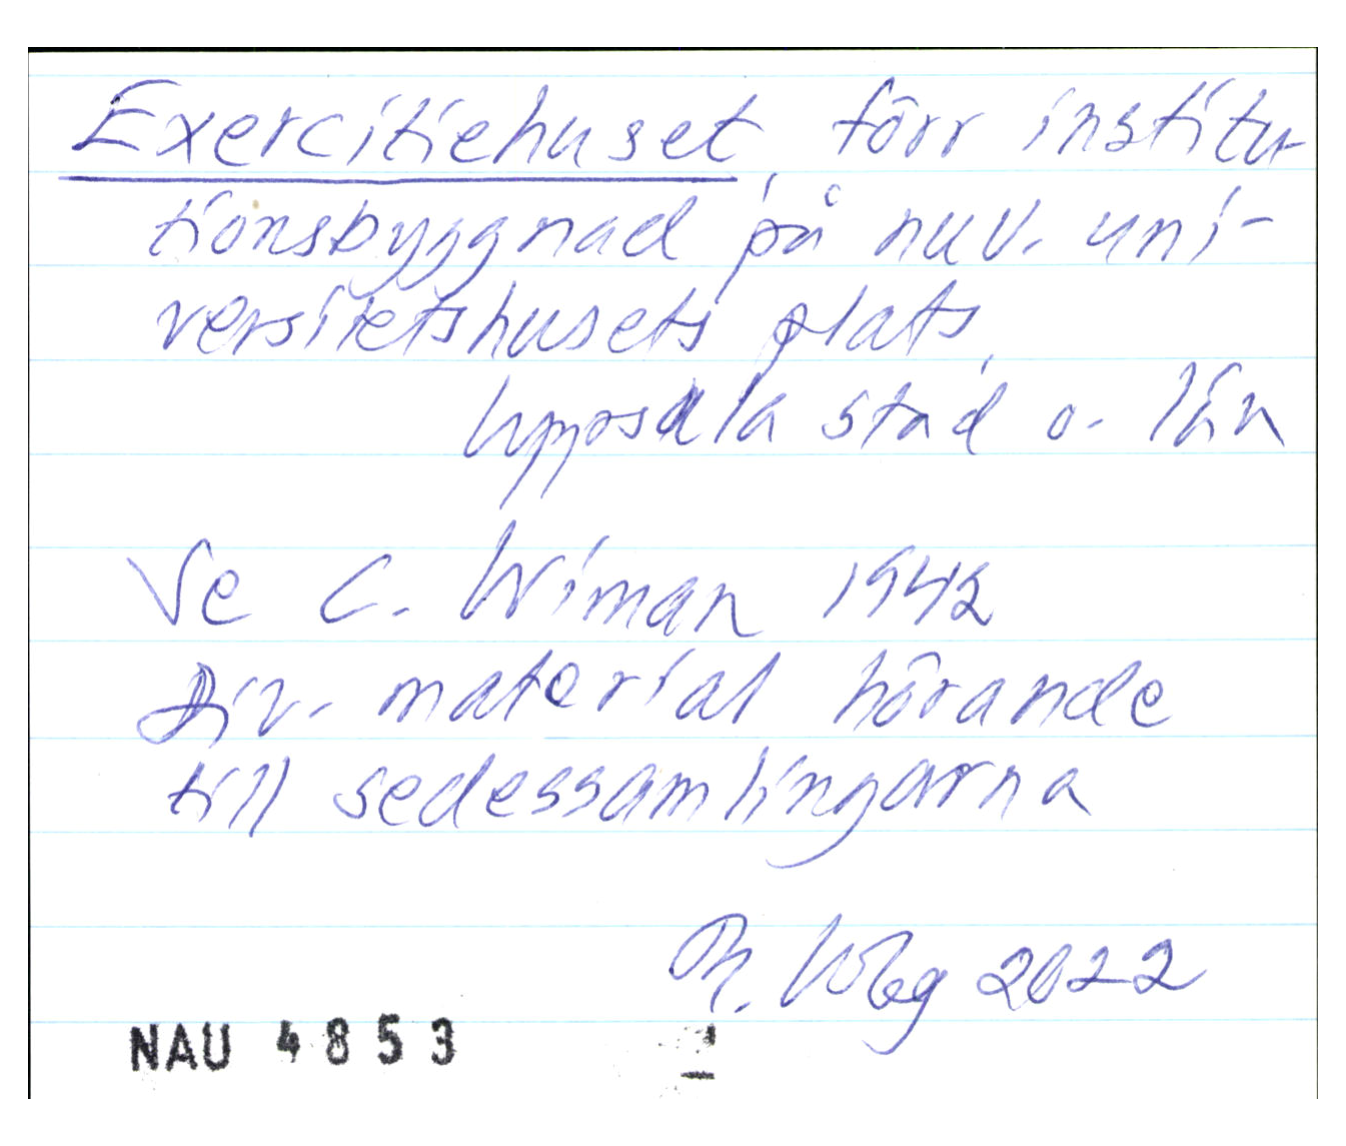 Exercitiehuset, förr institu-
tionsbyggnad på nuv. uni-
versitetshusets plats,
Uppsala stad o. län
Se C. Wiman 1942
Div. material hörande
till sedessamlingarna
2022
NAU 4853